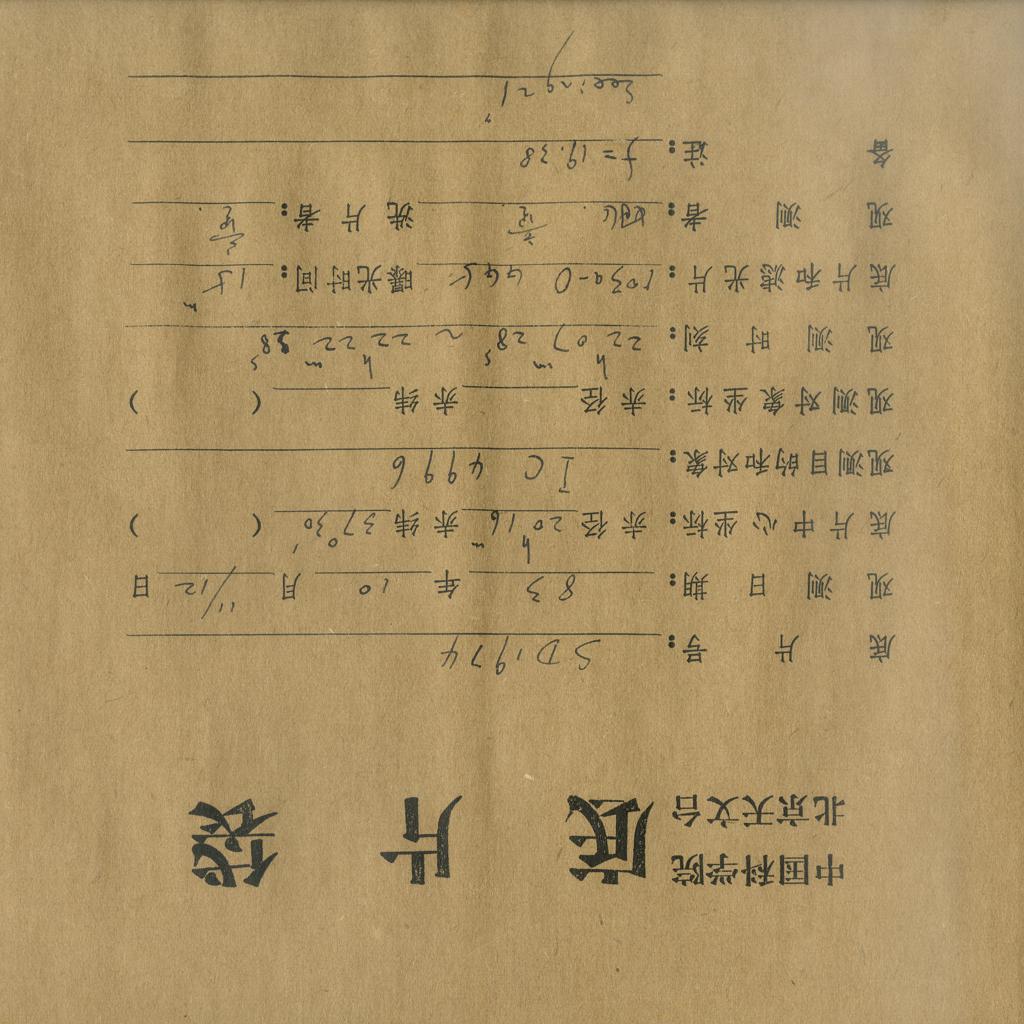 中国科学院
北京天文台
底 片 袋
底 片 号: SD1974
观 测 日 期: 83 年 10 月 11/12 日
底片中心坐标: 赤径 20ʰ16ᵐ 赤纬 37°30′ ( )
观测目的和对象: IC 4996
观测对象坐标: 赤径 赤纬 ( )
观 测 时 刻: 22ʰ07ᵐ28ˢ ~ 22ʰ22ᵐ28ˢ
底片和滤光片: 103a-O GG5 曝光时间: 15ᵐ
观 测 者: 洗片者:
备 注: f = 19.38
Seeing ~ 1"